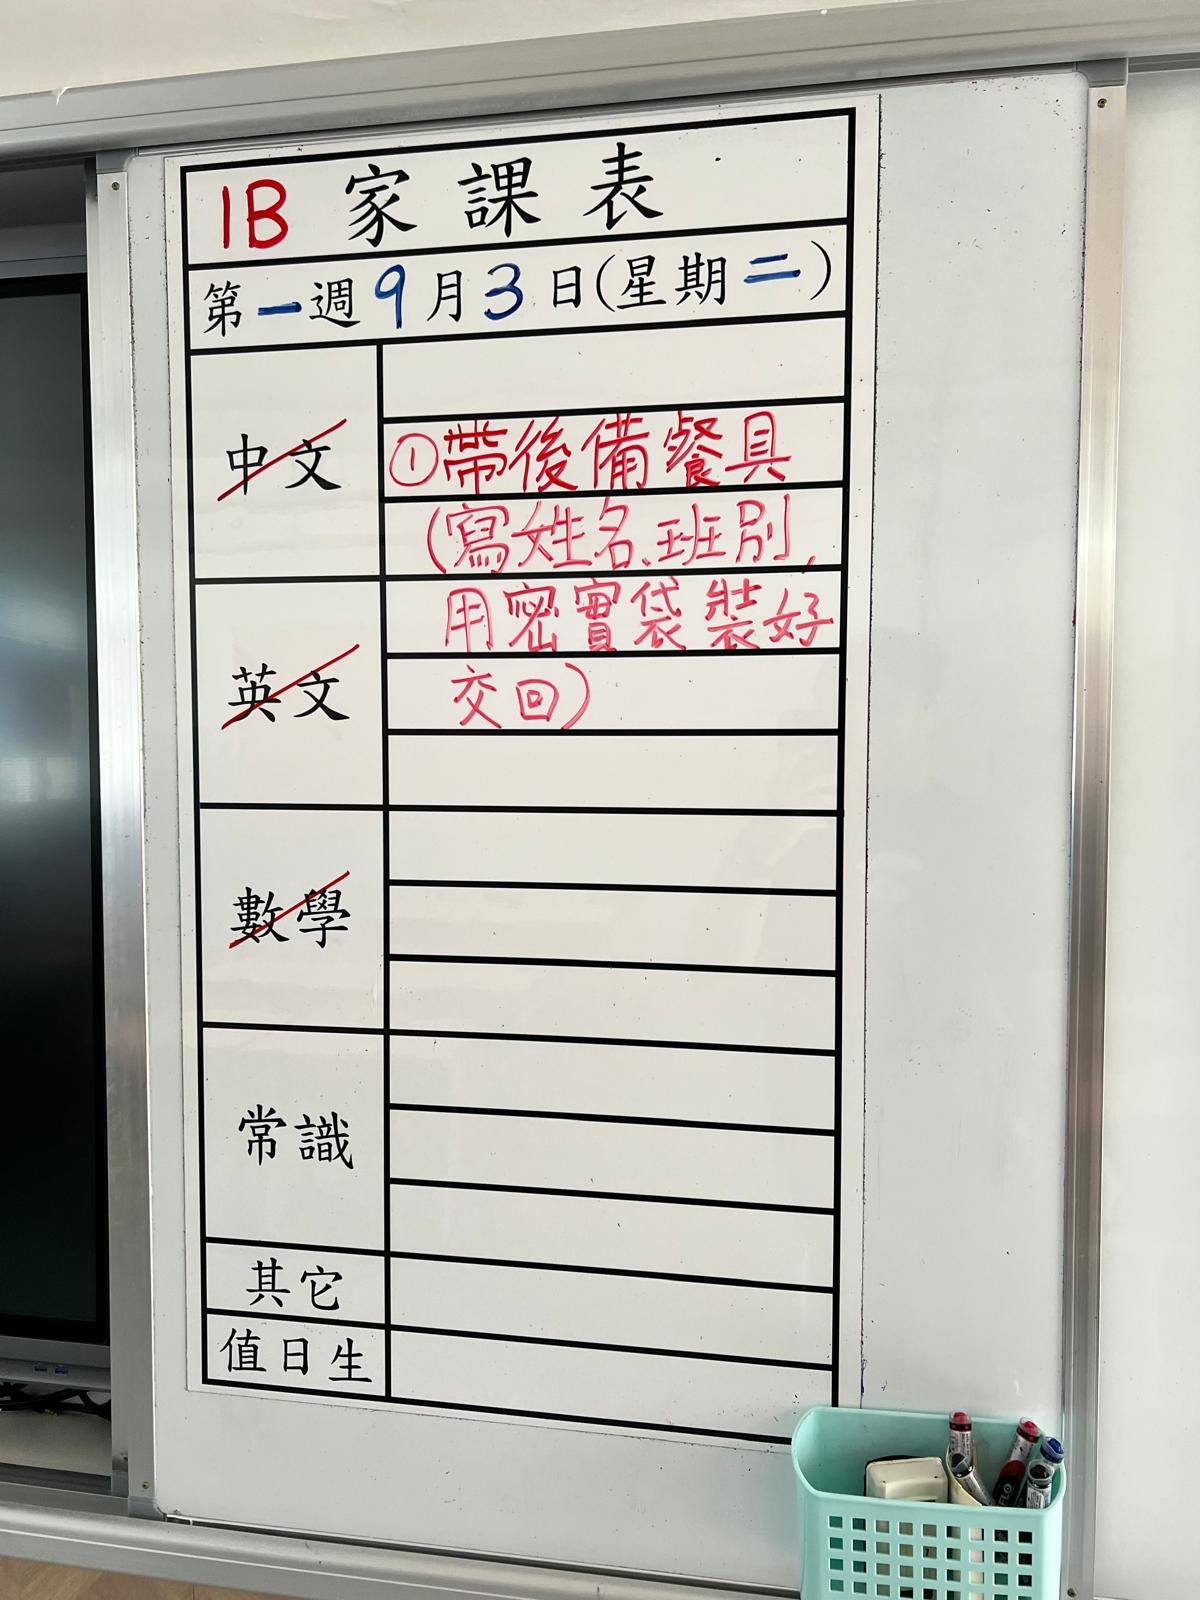 1B 家課表
第一週9月3日(星期二)
中文
①帶後備餐具
(寫姓名、班別,
用密實袋裝好
交回)
英文
數學
常識
其它
值日生